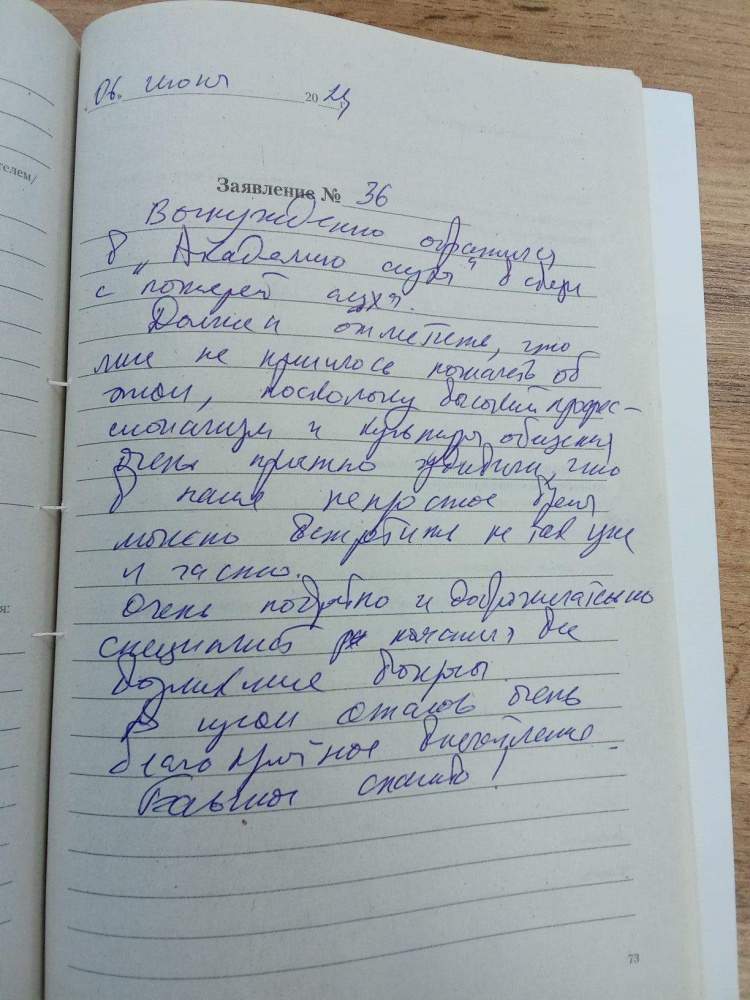 телем/
я:
06. июня 20 24
Заявление № 36
Вынужденно обратился
в „Академию слуха" в связи
с потерей слуха.
Должен отметить, что
мне не пришлось пожалеть об
этом, поскольку высокий профес-
сионализм и культура общения
очень приятно удивили, что
в наше непростое время
можно встретить не так уже
и часто.
Очень подробно и доброжелательно
специалист все
возникшие вопросы.
В целом осталось очень
благоприятное впечатление.
Большое спасибо!
73